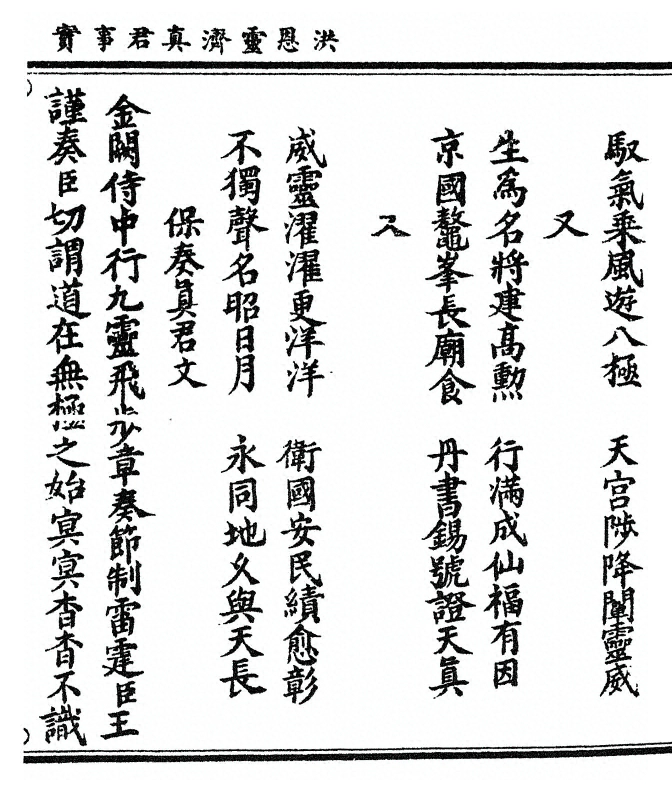 洪恩靈濟真君事實
馭氣乘風遊八極　天宮陟降闡靈威
又
生為名將建高勳　行滿成仙福有因
京國鼇峯長廟食　丹書錫號證天真
又
威靈濯濯更洋洋　衛國安民績愈彰
不獨聲名昭日月　永同地久與天長
保奏真君文
金闕侍中行九靈飛步章奏節制雷霆臣王
謹奏臣切謂道在無極之始冥冥杳杳不識